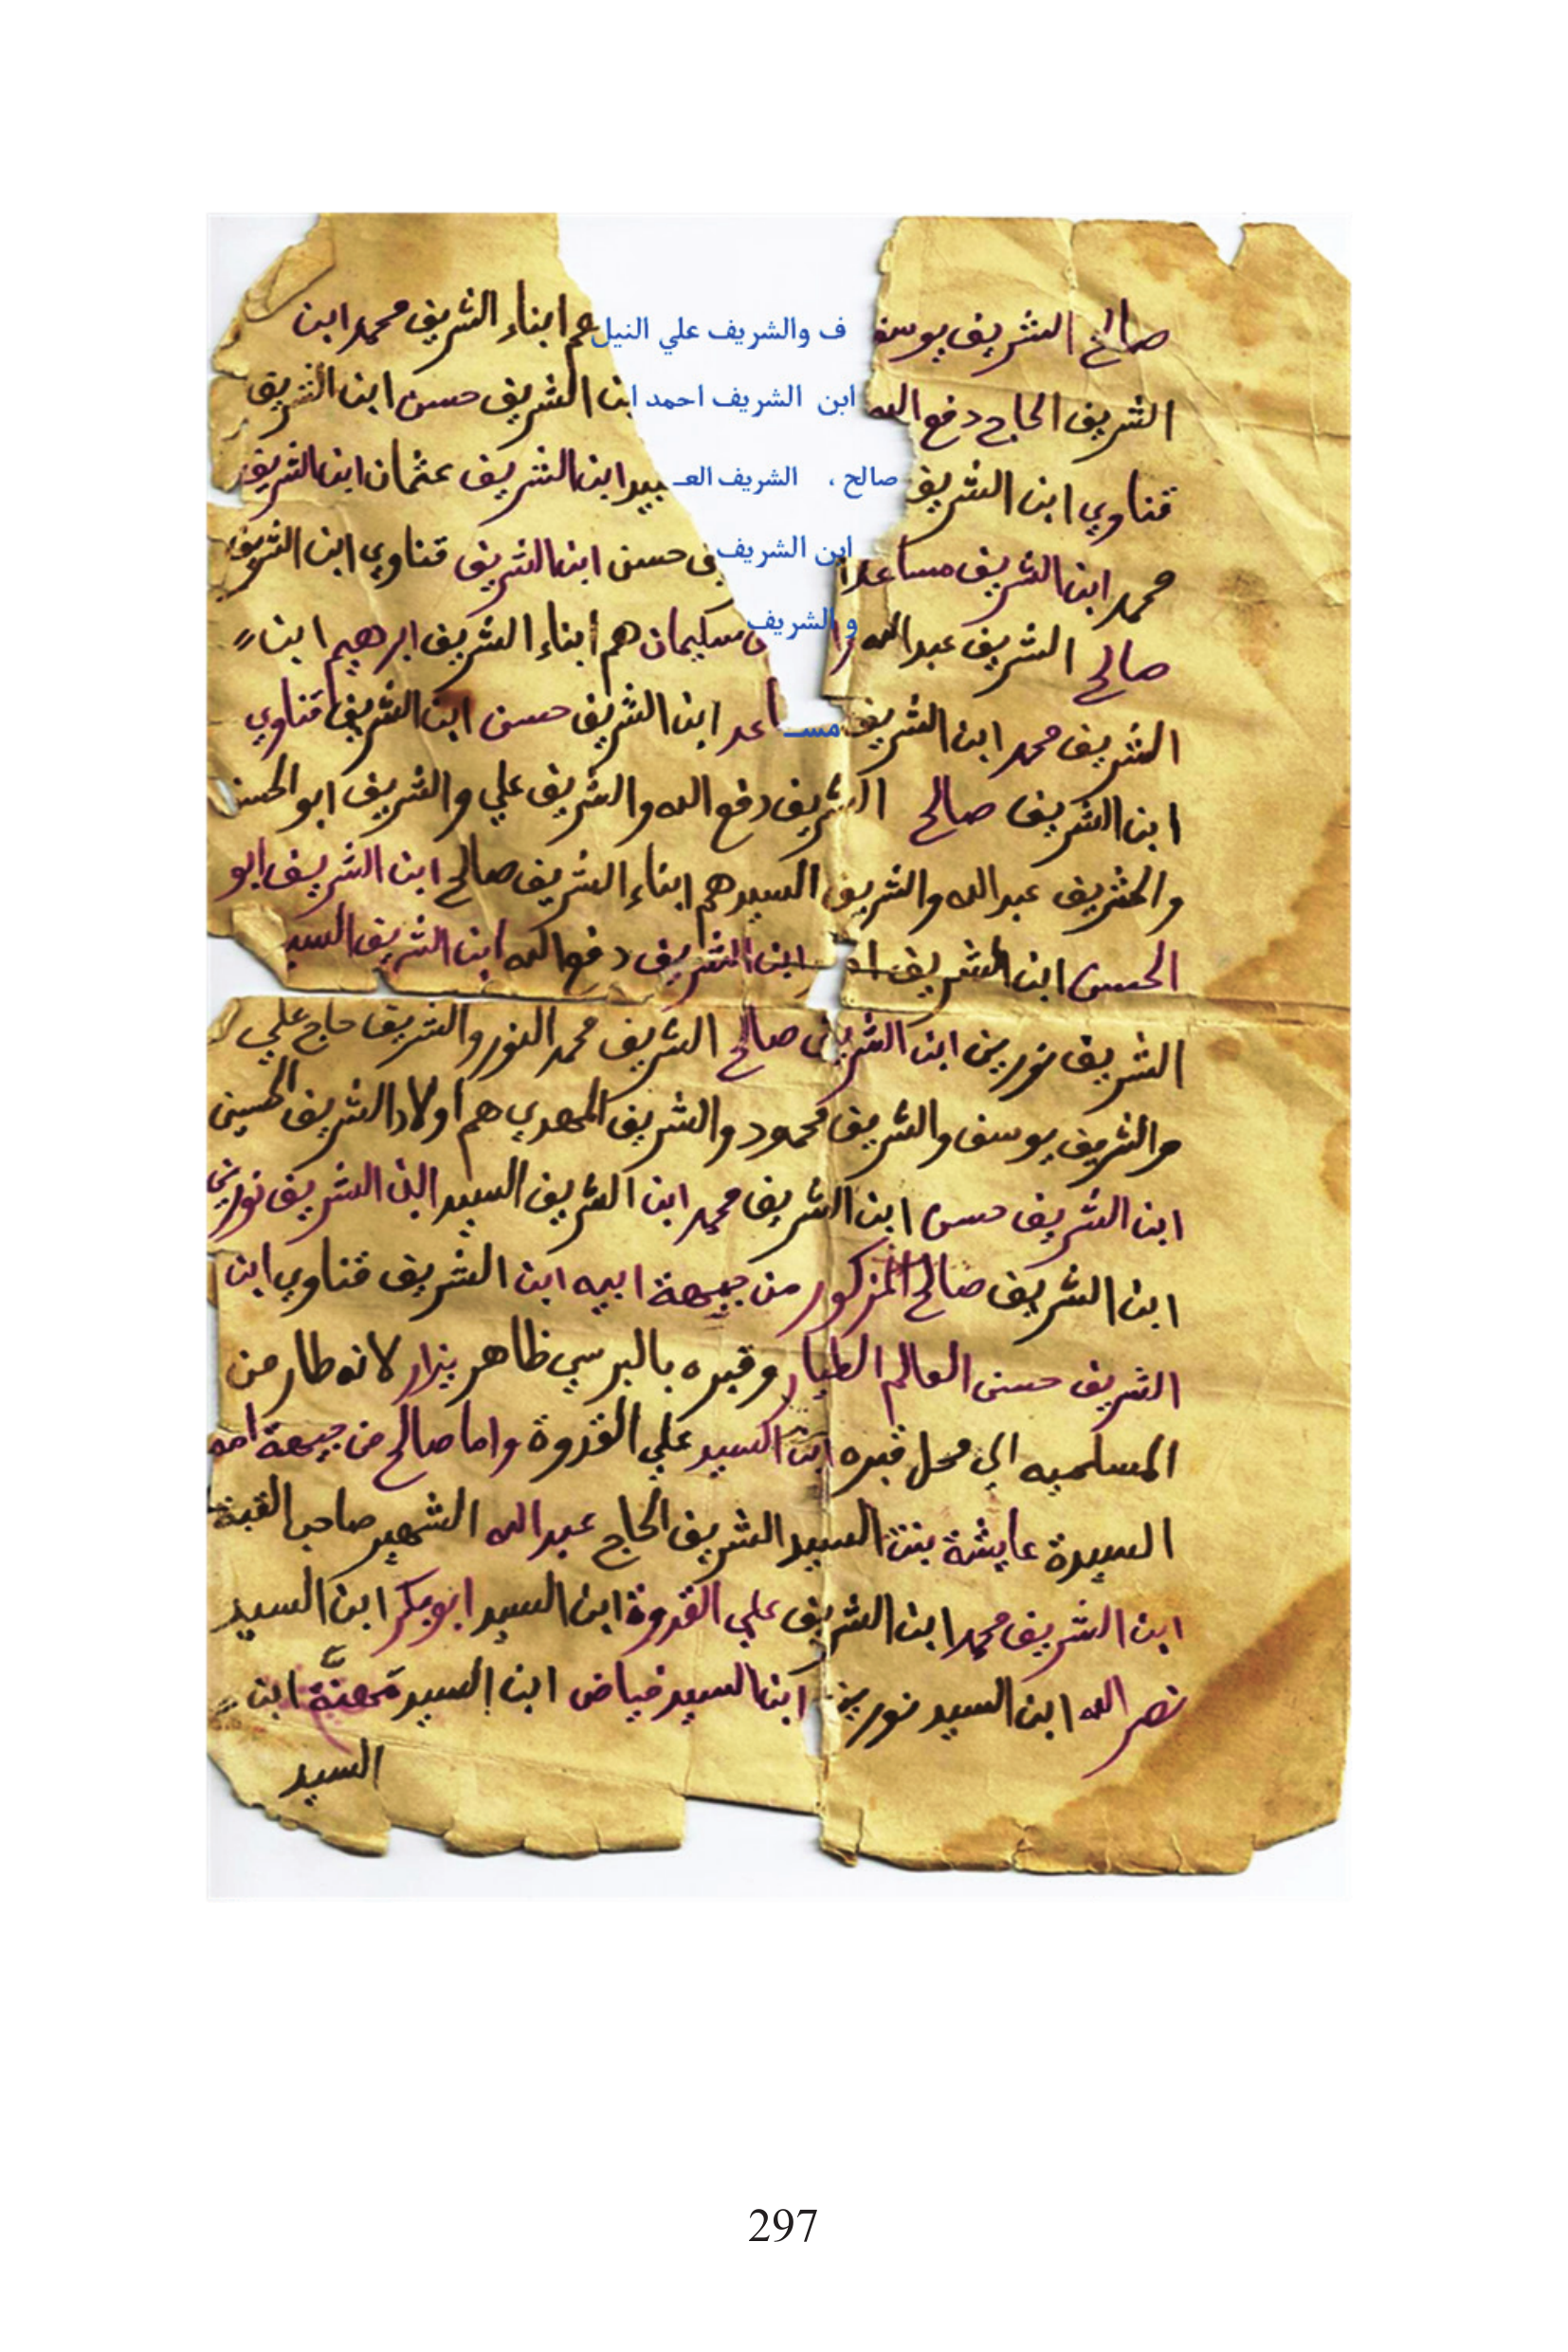 صالح الشريف يوسف والشريف علي النيل هم ابناء الشريف محمد ابن
الشريف الحاج دفع الله ابن الشريف احمد ابن الشريف حسن ابن الشريف
قناوي ابن الشريف صالح ، الشريف العـبيد ابن الشريف عثمان ابن الشريف
محمد ابن الشريف مساعد ابن الشريف حسن ابن الشريف قناوي ابن الشريف
صالح الشريف عبدالله والشريف سليمان هم أبناء الشريف ابرهيم ابن
الشريف محمد ابن الشريف مساعد ابن الشريف حسن ابن الشريف قناوي
ابن الشريف صالح الشريف دفع الله والشريف علي والشريف ابو الحسن
والشريف عبدالله والشريف السيد هم ابناء الشريف صالح ابن الشريف ابو
الحسن ابن الشريف ابن الشريف دفع الله ابن الشريف السيد
الشريف نورين ابن الشريف صالح الشريف محمد النور والشريف حاج علي
والشريف يوسف والشريف محمود والشريف المهدي هم اولاد الشريف الحسين
ابن الشريف حسن ابن الشريف محمد ابن الشريف السيد ابن الشريف نورين
ابن الشريف صالح المزكور من جيهة ابيه ابن الشريف قناوي ابن
الشريف حسن العالم الطيار وقبره بالبرسي ظاهر يزار لانه طار من
المسلميه الي محل قبره ابن السيد علي القدوة واما صالح من جيهة امه
السيدة عايشة بنت السيد الشريف الحاج عبدالله الشهير صاحب القبة
ابن الشريف محمد ابن الشريف علي القدوة ابن السيد ابوبكر ابن السيد
نصر الله ابن السيد نورين ابن السيد فياض ابن السيد مهنة ابن
السيد
297